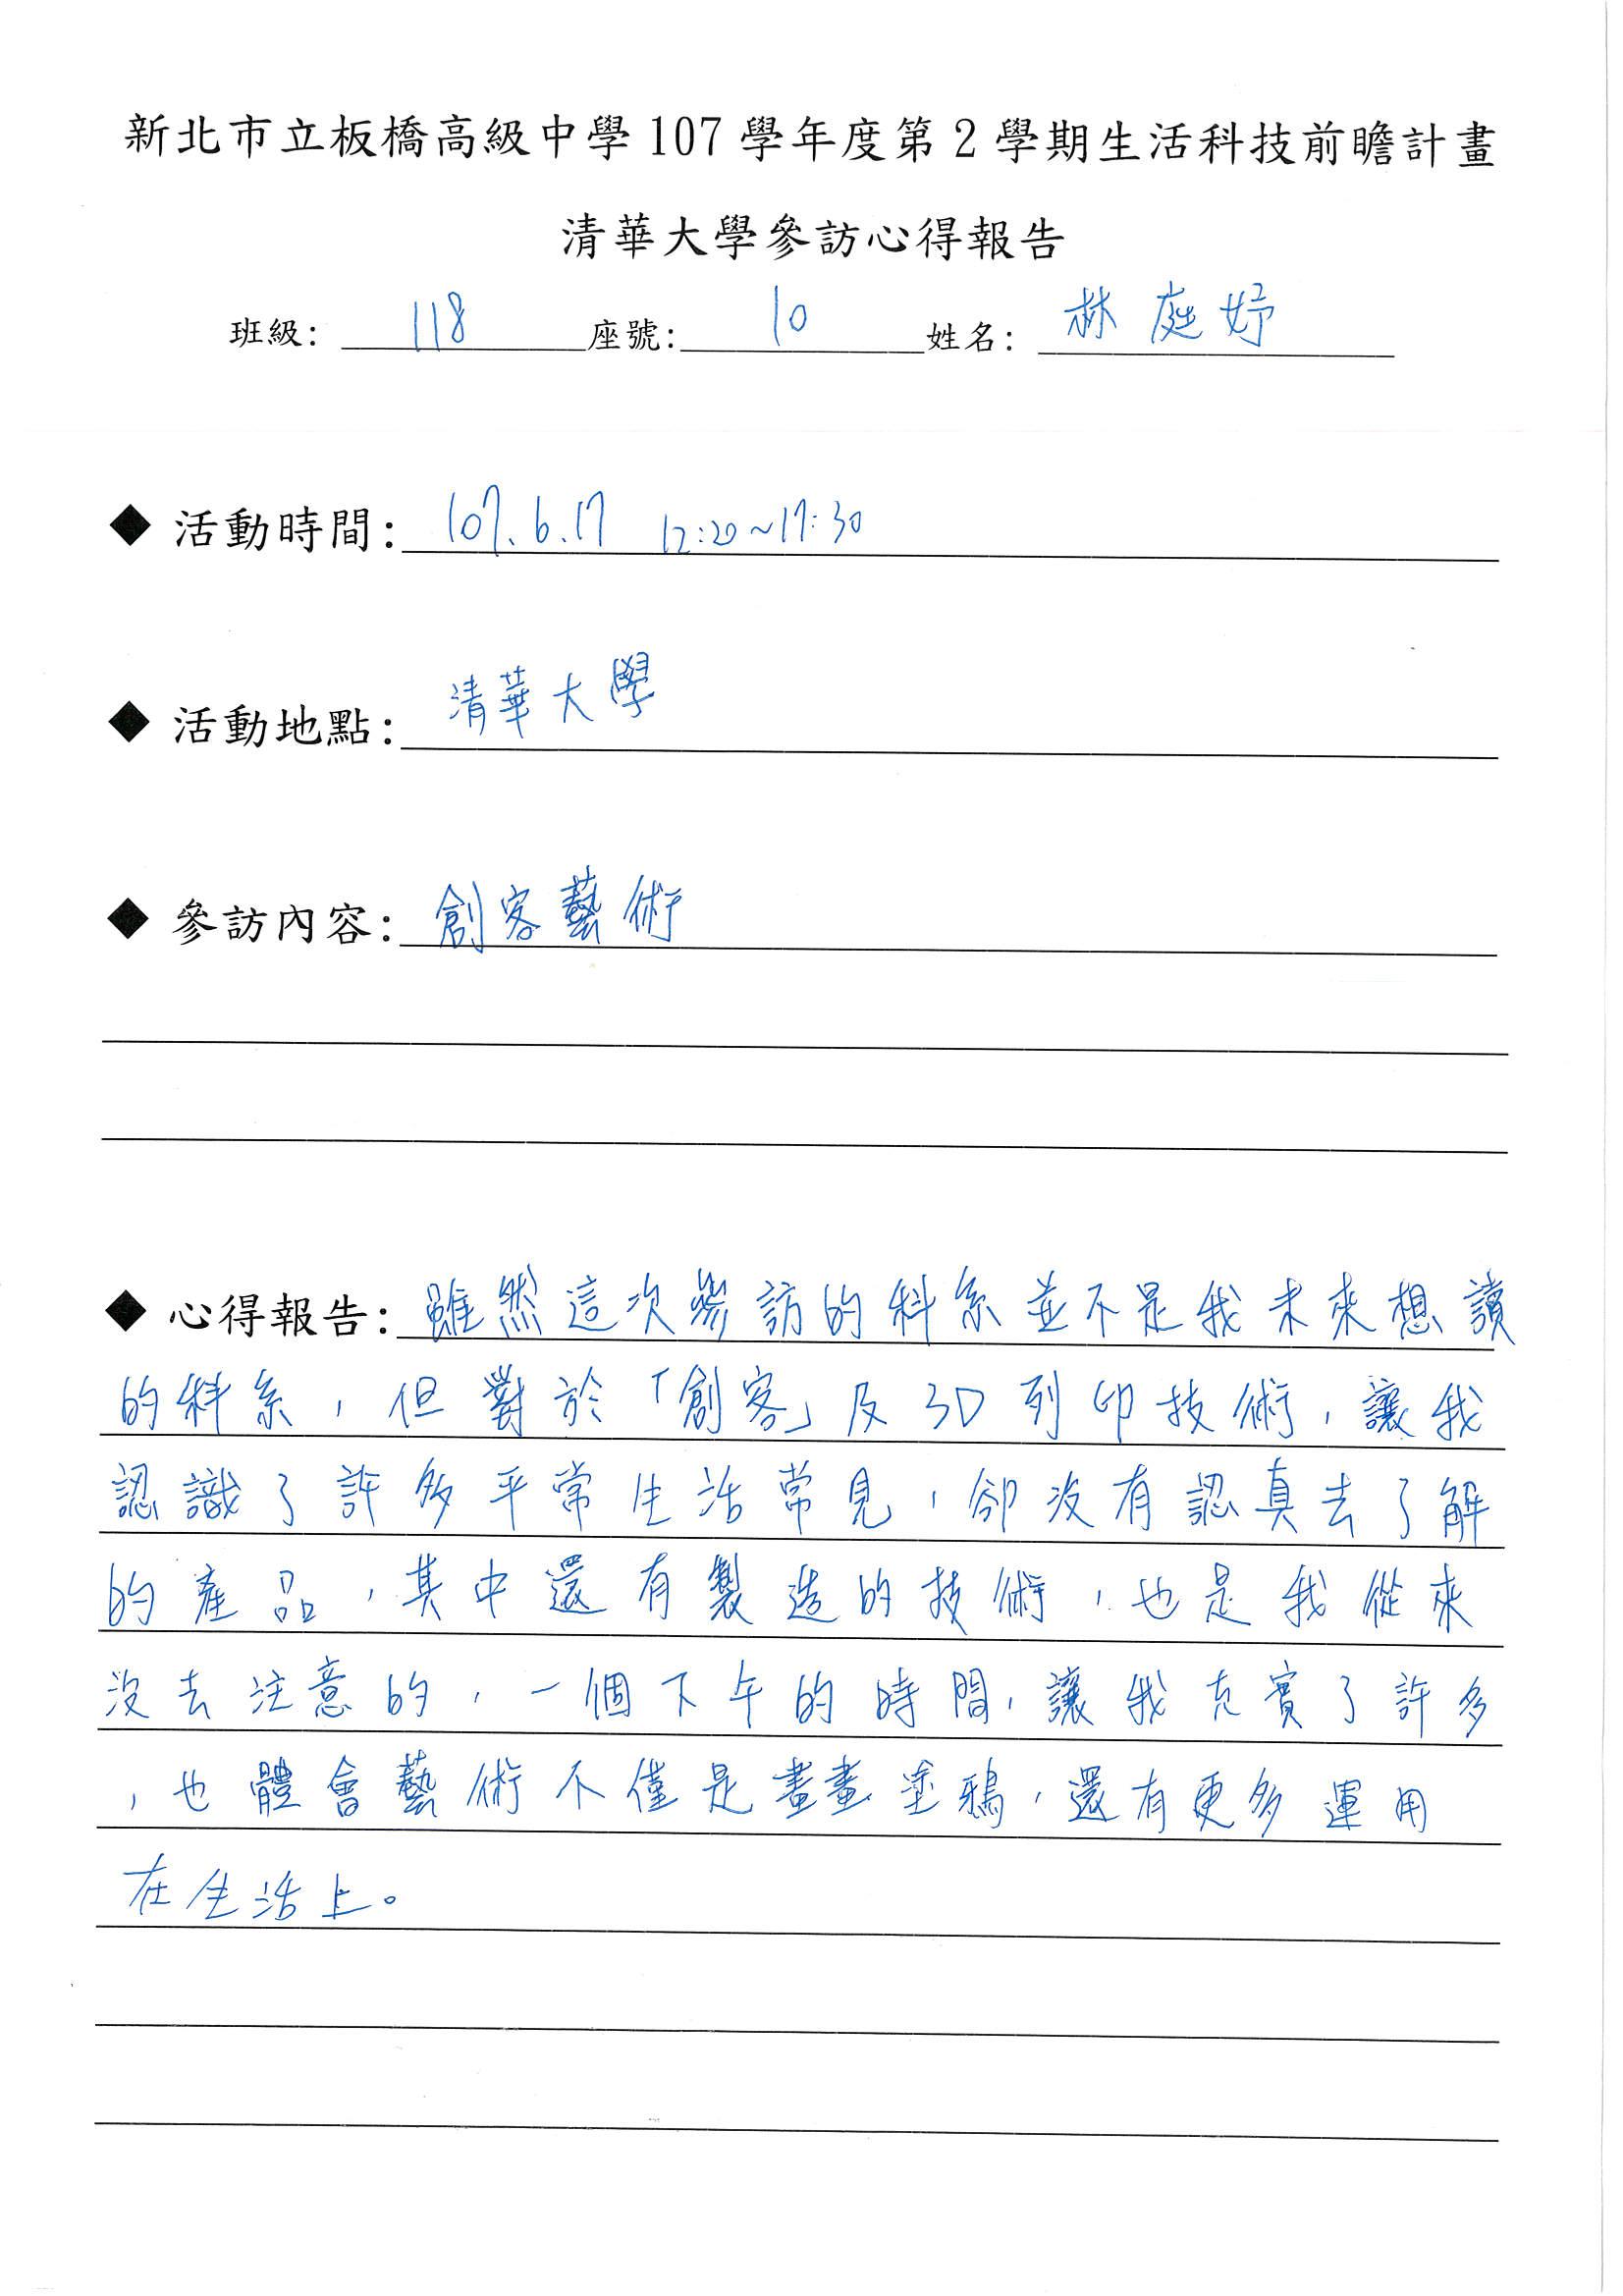 新北市立板橋高級中學 107 學年度第 2 學期生活科技前瞻計畫
清華大學參訪心得報告
班級: 118 座號: 10 姓名: 林庭妤
◆ 活動時間: 107.6.17 12:20~17:30
◆ 活動地點: 清華大學
◆ 參訪內容: 創客藝術
◆ 心得報告: 雖然這次參訪的科系並不是我未來想讀
的科系,但對於「創客」及3D列印技術,讓我
認識了許多平常生活常見,卻沒有認真去了解
的產品,其中還有製造的技術,也是我從來
沒去注意的,一個下午的時間,讓我充實了許多
,也體會藝術不僅是畫畫塗鴉,還有更多運用
在生活上。